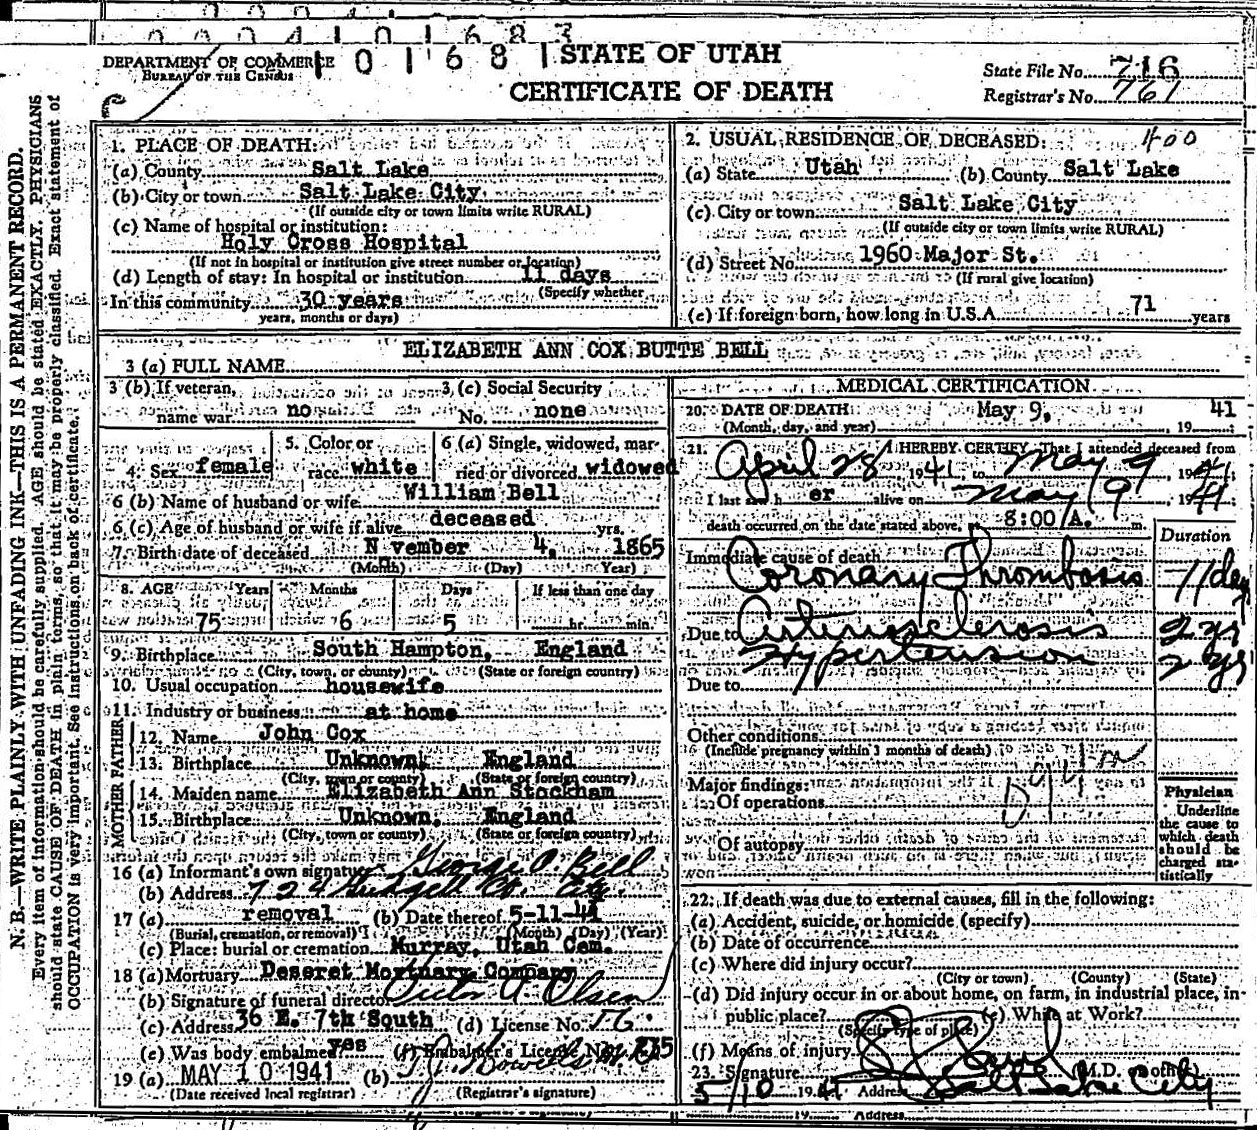 101681
STATE OF UTAH
CERTIFICATE OF DEATH
DEPARTMENT OF COMMERCE
BUREAU OF THE CENSUS
State File No. 716
Registrar's No. 761
N. B.—WRITE PLAINLY WITH UNFADING INK—THIS IS A PERMANENT RECORD.
Every item of information should be carefully supplied. AGE should be stated EXACTLY. PHYSICIANS
should state CAUSE OF DEATH in plain terms, so that it may be properly classified. Exact statement of
OCCUPATION is very important. See instructions on back of certificate.
1. PLACE OF DEATH:
(a) County Salt Lake
(b) City or town Salt Lake City
(If outside city or town limits write RURAL)
(c) Name of hospital or institution:
Holy Cross Hospital
(If not in hospital or institution give street number or location)
(d) Length of stay: In hospital or institution 11 days
(Specify whether
In this community 30 years
years, months or days)
2. USUAL RESIDENCE OF DECEASED: 400
(a) State Utah (b) County Salt Lake
(c) City or town Salt Lake City
(If outside city or town limits write RURAL)
(d) Street No. 1960 Major St.
(If rural give location)
(e) If foreign born, how long in U.S.A. 71 years
3 (a) FULL NAME ELIZABETH ANN COX BUTTE BELL
3 (b) If veteran, name war no
3. (c) Social Security No. none
4. Sex female
5. Color or race white
6 (a) Single, widowed, married or divorced widowed
6 (b) Name of husband or wife William Bell
6 (c) Age of husband or wife if alive deceased yrs.
7. Birth date of deceased N vember 4, 1865
(Month) (Day) (Year)
8. AGE Years Months Days If less than one day
75 6 5 hr. min.
9. Birthplace South Hampton, England
(City, town, or county) (State or foreign country)
10. Usual occupation housewife
11. Industry or business at home
FATHER
12. Name John Cox
13. Birthplace Unknown, England
(City, town or county) (State or foreign country)
MOTHER
14. Maiden name Elizabeth Ann Stockham
15. Birthplace Unknown, England
(City, town or county) (State or foreign country)
16 (a) Informant's own signature George O. Bell
(b) Address 724 City.
17 (a) removal (b) Date thereof 5-11-41
(Burial, cremation, or removal) (Month) (Day) (Year)
(c) Place: burial or cremation Murray, Utah Cem.
18 (a) Mortuary Deseret Mortuary Company
(b) Signature of funeral director Victor A. Olsen
(c) Address 36 E. 7th South (d) License No. 56
(e) Was body embalmed yes (f) Embalmer's License No. 235
19 (a) MAY 10 1941 (b)
(Date received local registrar) (Registrar's signature)
MEDICAL CERTIFICATION
20. DATE OF DEATH: May 9, 1941
(Month, day, and year)
21. I HEREBY CERTIFY, That I attended deceased from
April 28, 1941 to May 9, 1941
I last saw h er alive on May 9, 1941
death occurred on the date stated above, at 8:00 A. m.
Duration
Immediate cause of death
Coronary Thrombosis 11 day
Due to Arteriosclerosis 2 yr
Hypertension 2 yr
Due to
Other conditions
(Include pregnancy within 3 months of death)
Major findings:
Of operations
Of autopsy
Physician
Underline
the cause to
which death
should be
charged sta-
tistically
22. If death was due to external causes, fill in the following:
(a) Accident, suicide, or homicide (specify)
(b) Date of occurrence
(c) Where did injury occur?
(City or town) (County) (State)
(d) Did injury occur in or about home, on farm, in industrial place, in
public place? (e) While at Work?
(Specify type of place)
(f) Means of injury
23. Signature (M.D. or other)
5/10 1941 Address Salt Lake City
19 Address